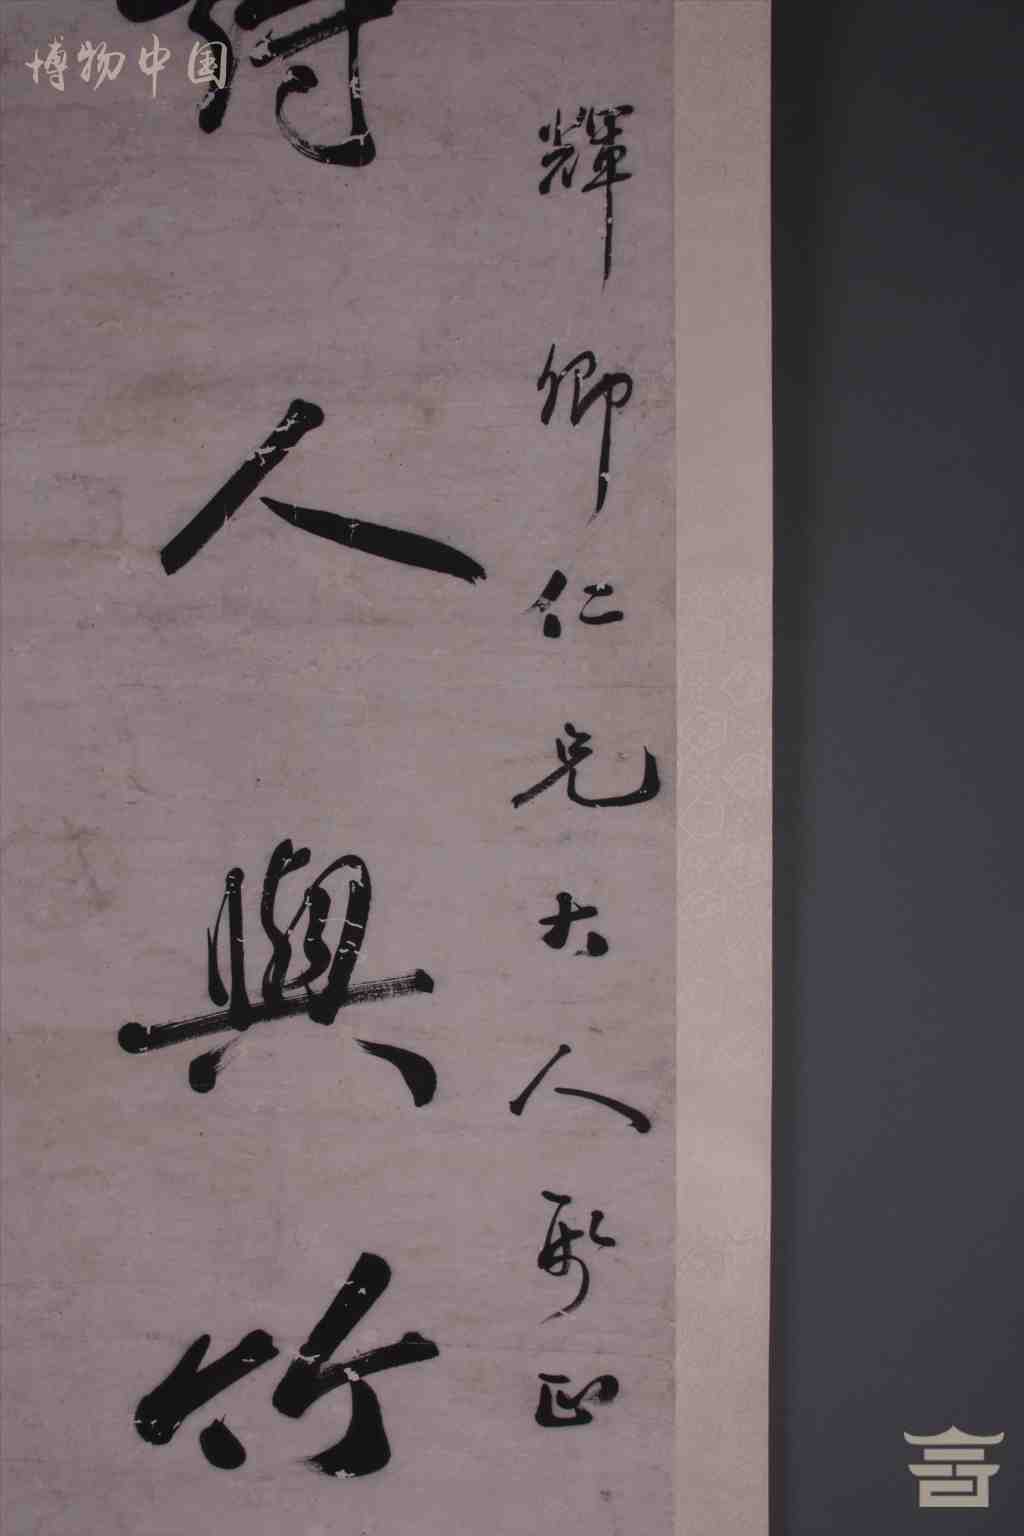 博物中国
輝卿仁兄大人正
人與竹